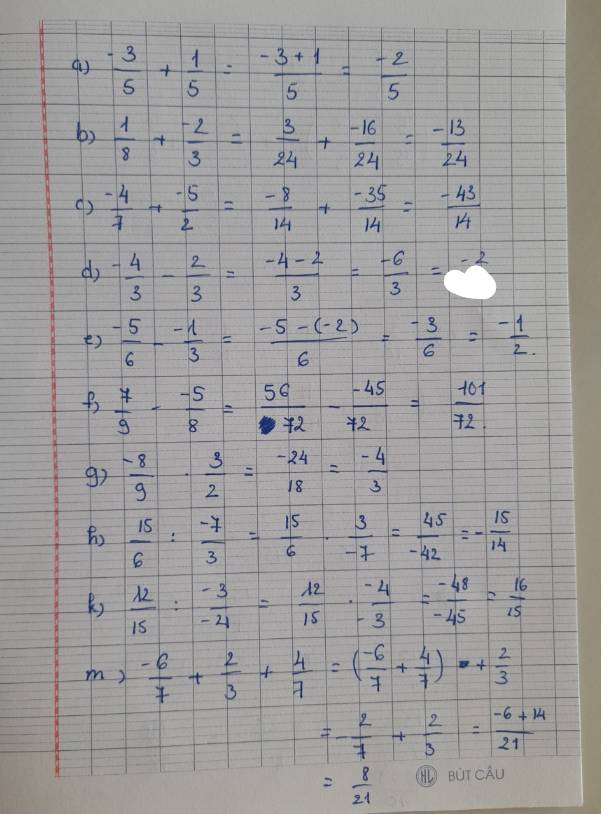 a) -3/5 + 1/5 = -3 + 1/5 = -2/5
b) 1/8 + -2/3 = 3/24 + -16/24 = -13/24
c) -4/7 + -5/2 = -8/14 + -35/14 = -43/14
d) -4/3 - 2/3 = -4 - 2/3 = -6/3 = -2
e) -5/6 - -1/3 = -5 - (-2)/6 = -3/6 = -1/2.
f) 7/9 - -5/8 = 56/72 - -45/72 = 101/72.
g) -8/9 . 3/2 = -24/18 = -4/3
h) 15/6 : -7/3 = 15/6 . 3/-7 = 45/-42 = -15/14
k) 12/15 : -3/-4 = 12/15 . -4/-3 = -48/-45 = 16/15
m) -6/7 + 2/3 + 4/7 = (-6/7 + 4/7) + 2/3
= -2/7 + 2/3 = -6 + 14/21
= 8/21
HL BÚT CÂU